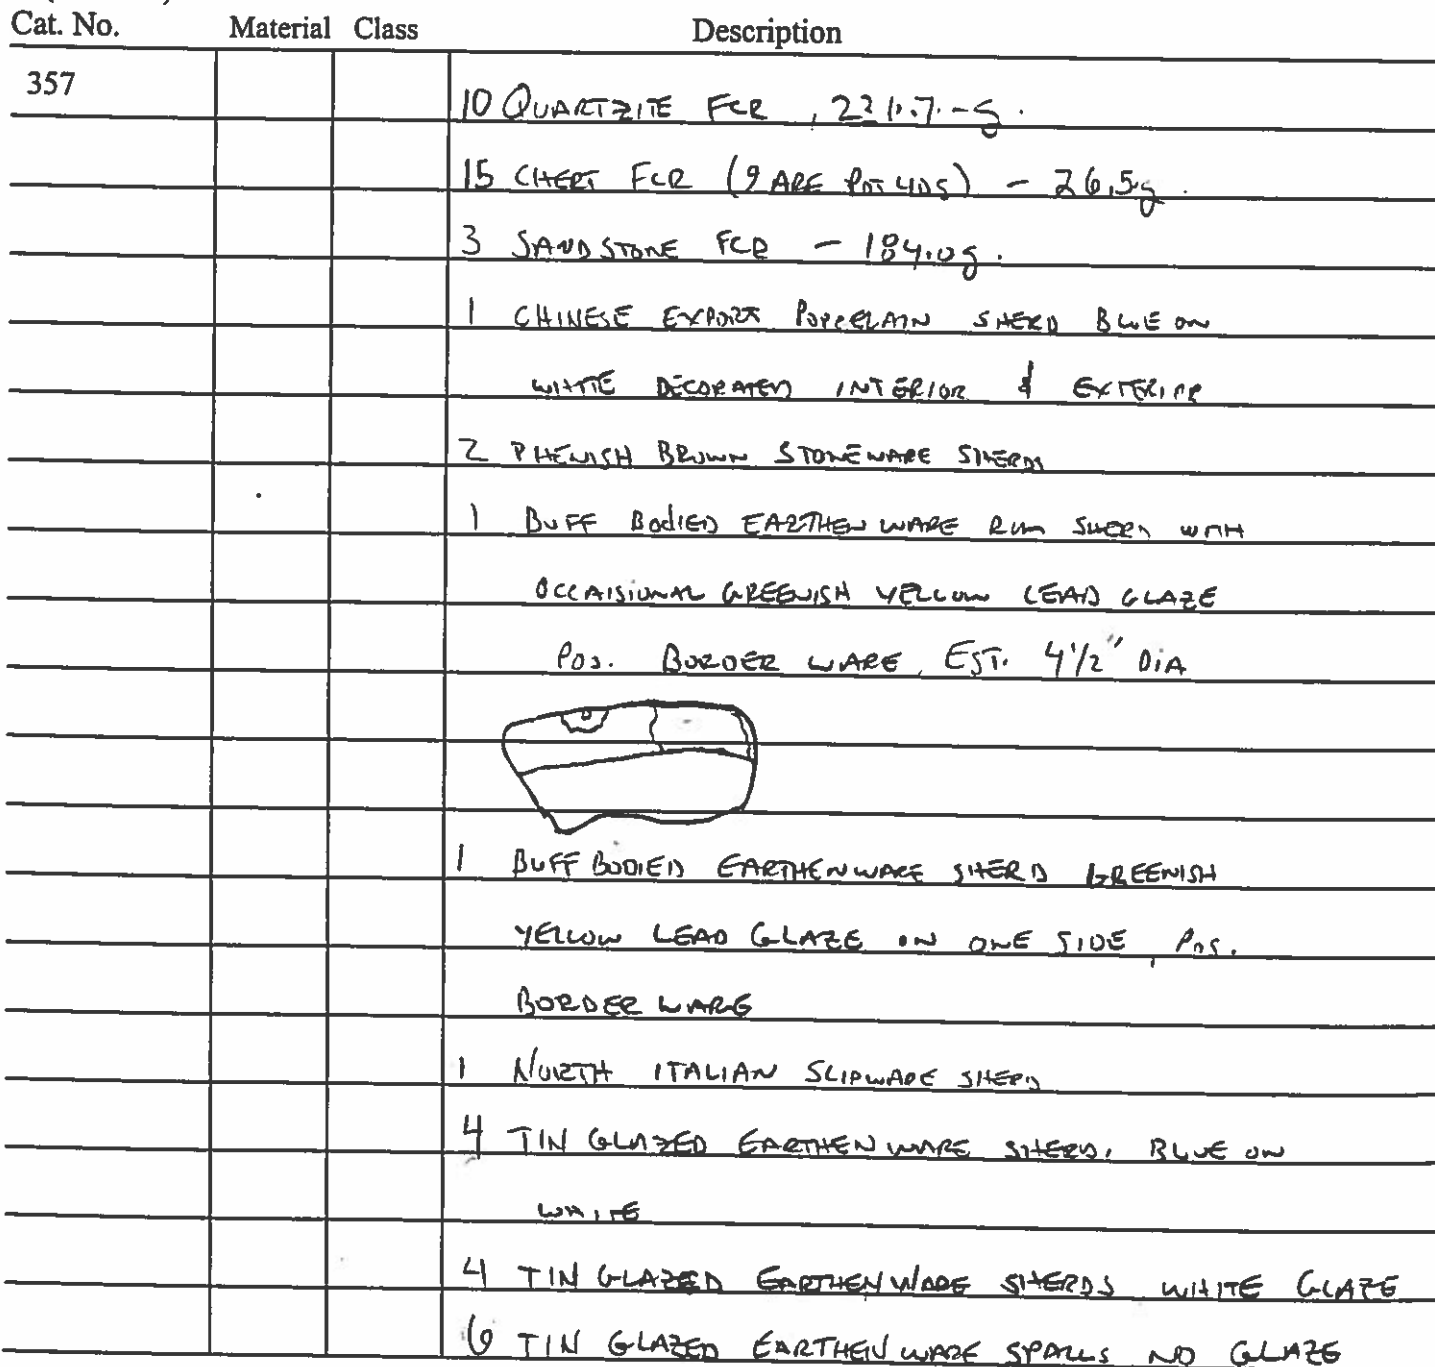 Cat. No. Material Class Description
357
10 QUARTZITE FCR, 221.7-g.
15 CHERT FCR (9 ARE POT LIDS) - 26.5g.
3 SANDSTONE FCR - 184.0g.
1 CHINESE EXPORT PORCELAIN SHERD BLUE ON
WHITE DECORATED INTERIOR & EXTERIOR
2 RHENISH BROWN STONEWARE SHERDS
1 BUFF BODIED EARTHENWARE RIM SHERD WITH
OCCAISIONAL GREENISH YELLOW LEAD GLAZE
POS. BORDER WARE, EST. 4 1/2" DIA
1 BUFF BODIED EARTHENWARE SHERD GREENISH
YELLOW LEAD GLAZE ON ONE SIDE, POS.
BORDER WARE
1 NORTH ITALIAN SLIPWARE SHERD
4 TIN GLAZED EARTHENWARE SHERDS BLUE ON
WHITE
4 TIN GLAZED EARTHENWARE SHERDS WHITE GLAZE
6 TIN GLAZED EARTHENWARE SPALLS NO GLAZE